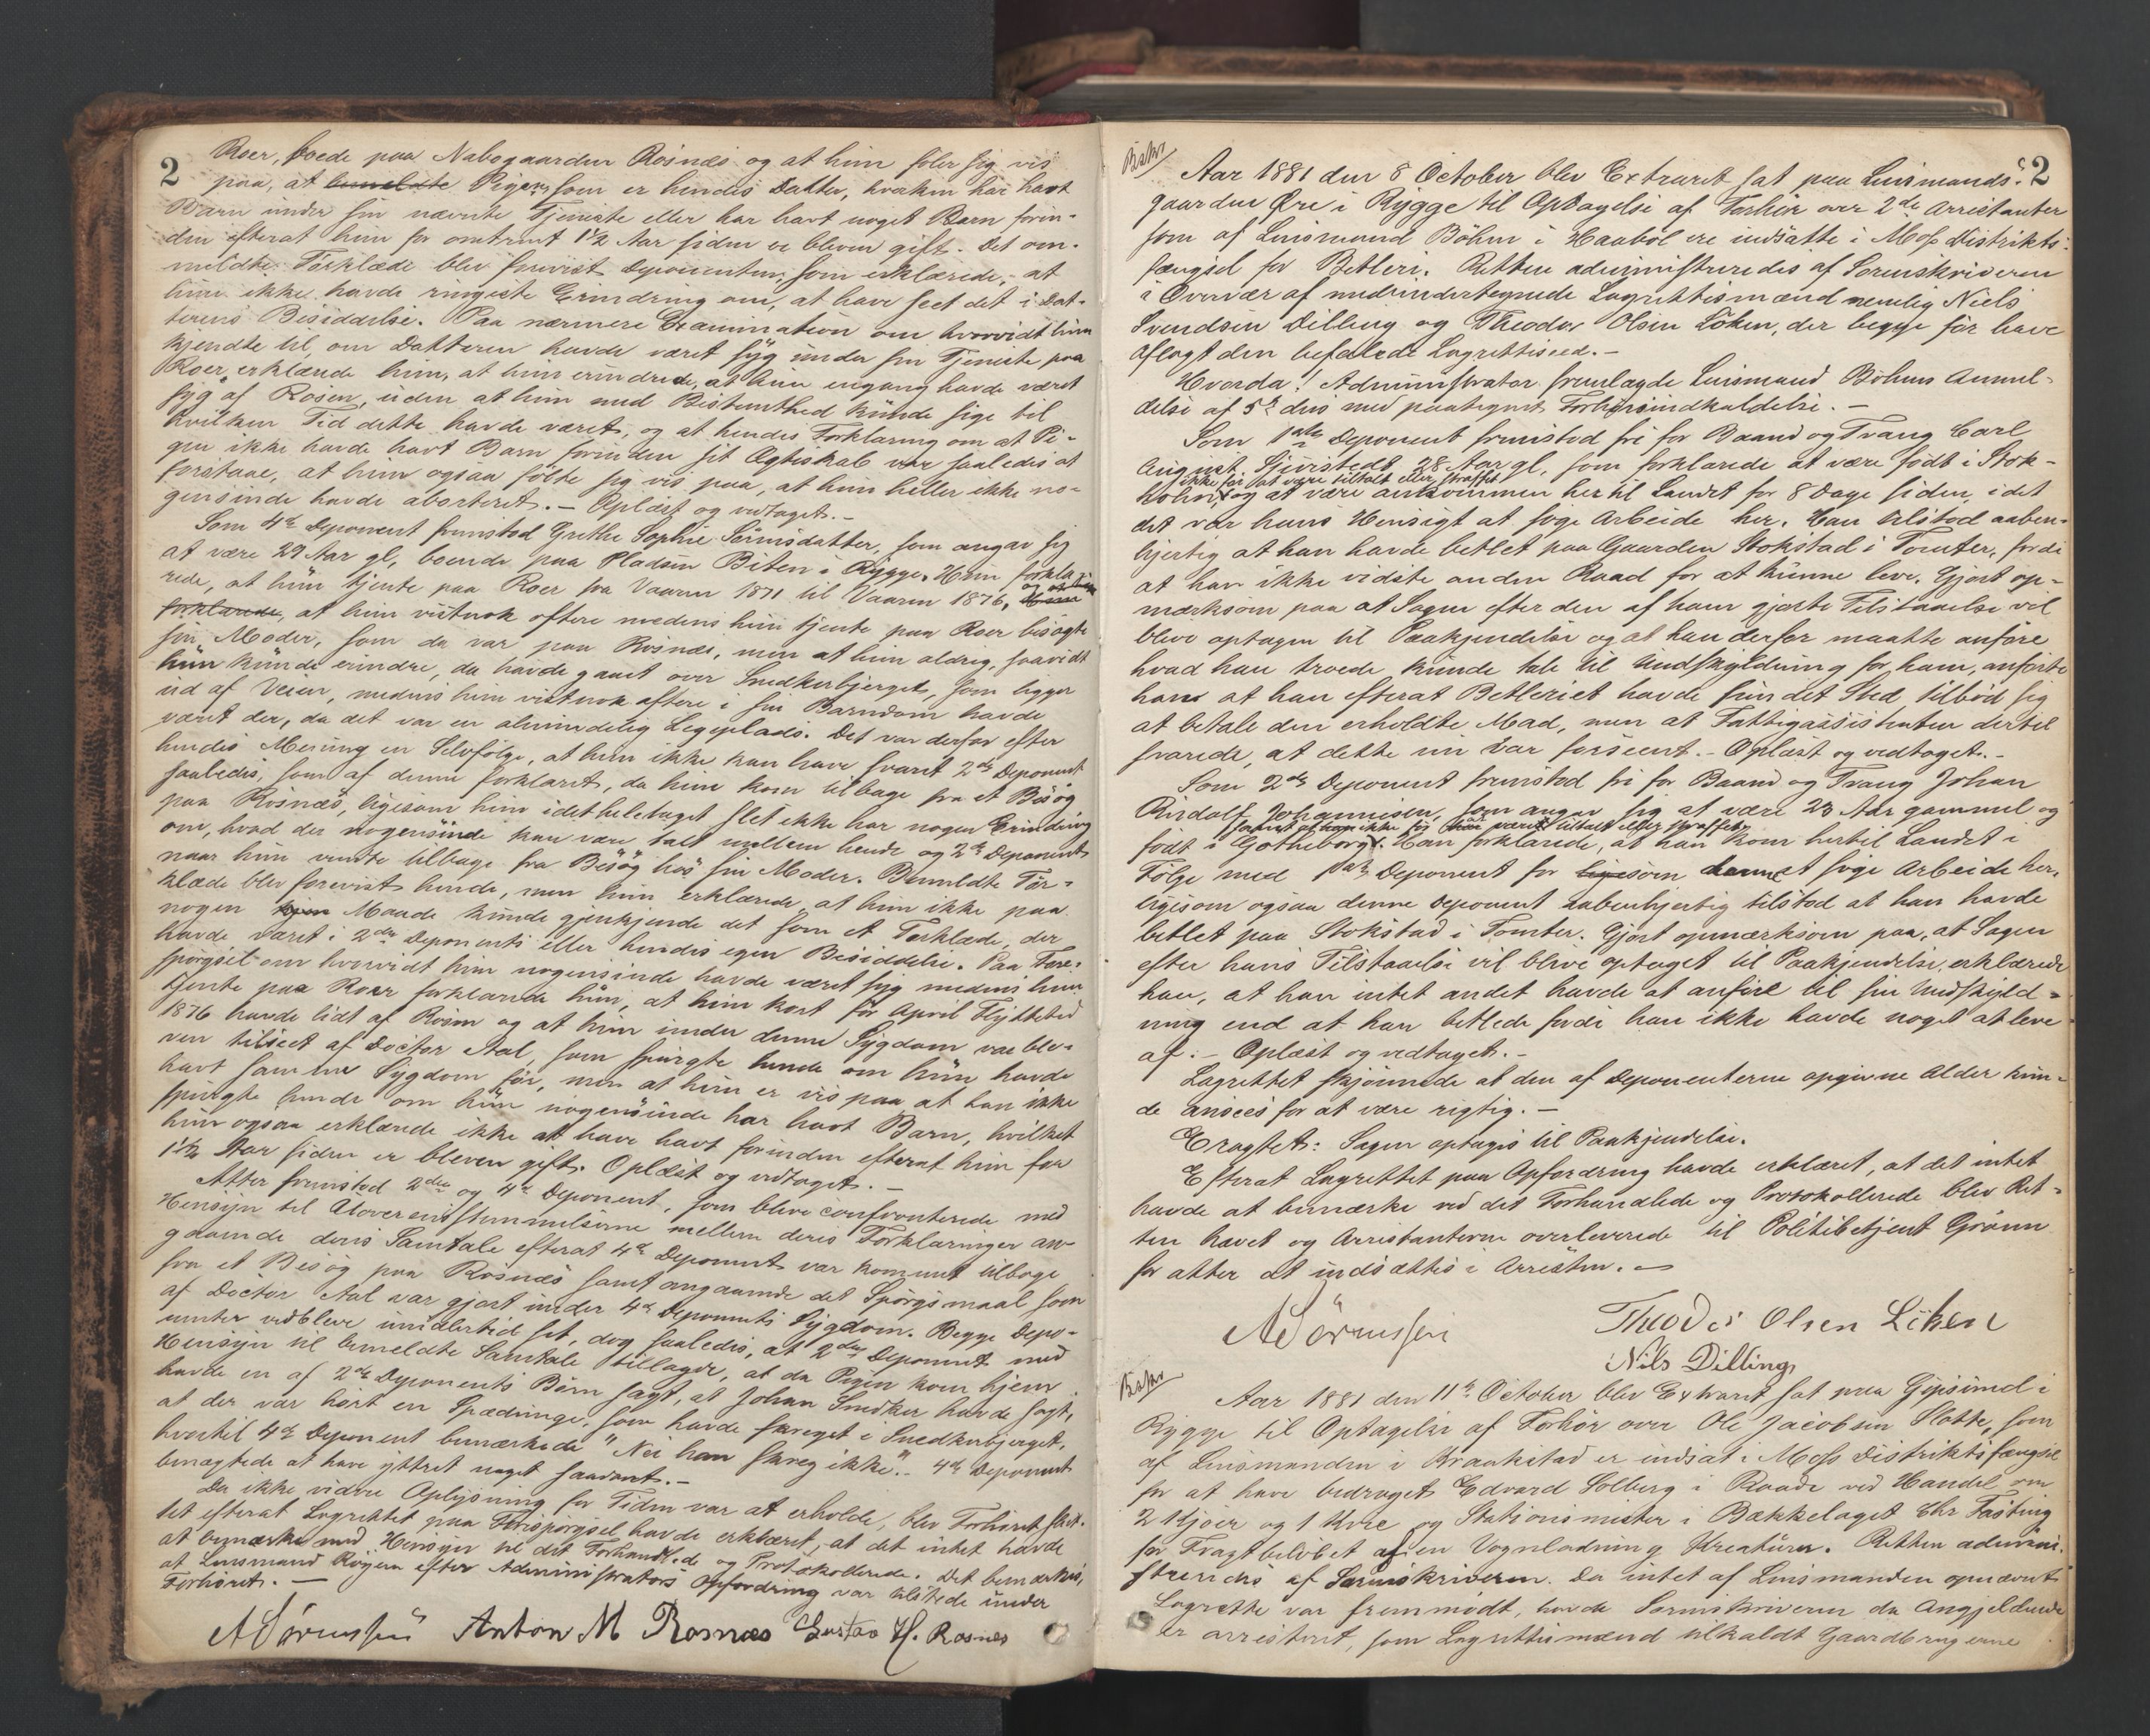 2
Roer, boede paa Nabogaarden Rosnæs og at hun föler sig vis
paa, at bemeldte Pigen, som er hendes Datter, hverken har havt
Barn under sin nævnte Tjeneste eller har havt noget Barn forin-
den efterat hun for omtrent 1½ Aar siden er bleven gift. Det om-
meldte Törklæde blev forevist Deponenten, som erklærede, at
hun ikke havde ringeste Erindring om, at have seet det i Dat-
terens Besiddelse. Paa nærmere Examination om hvorvidt hun
kjendte til, om Datteren havde været syg under sin Tjeneste paa
Roer, erklærede hun, at hun erindrede, at hun engang havde været
syg af Rosen, uden at hun med Bestemthed kunde sige til
hvilken Tid dette havde været, og at hendes Forklaring om at Pi-
gen ikke havde havt Barn forinden sit Ægteskab var saaledes at
forstaae, at hun ogsaa fölte sig vis paa, at hun heller ikke no-
gensinde havde aborteret. – Oplæst og vedtaget. –
Som 4de Deponent fremstod Grethe Sophie Sörensdatter, som angav sig
at være 27 Aar gl, boende paa Pladsen Biten i Rygge. Hun forkla-
rede, at hun tjente paa Roer fra Vaaren 1871 til Vaaren 1876, Hun og at hun
forklarede, at hun vistnok oftere medens hun tjente paa Roer besögte
sin Moder, som da var paa Rosnæs, men at hun aldrig, saavidt
hun kunde erindre, da havde gaaet over Snedkerbjerget, som ligger
ud af Veien, medens hun vistnok oftere i sin Barndom havde
været der, da det var en almindelig Legeplads. Det var derfor efter
hendes Mening en Selvfölge, at hun ikke kan have svaret 2den Deponent
saaledes, som af denne forklaret, da hun kom tilbage fra et Besög
paa Rosnæs, ligesom hun idethele taget slet ikke har nogen Erindring
om, hvad der nogensinde kan være talt mellem hende og 2de Deponent
naar hun vendte tilbage fra Besög hos sin Moder. Bemeldte Tör-
klæde blev forevist hende, men hun erklærede, at hun ikke paa
nogen Maade kunde gjenkjende det som et Törklæde, der
havde været i 2den Deponents eller hendes egen Besiddelse. Paa Fore-
spörgsel om hvorvidt hun nogensinde havde været syg medens hun
tjente paa Roer forklarede hun, at hun kort för April Flyttetid
1876 havde lidt af Rosen og at hun under denne Sygdom var ble-
ven tilseet af Doctor Aal, som spurgte hende om hun havde
havt samme Sygdom för, men at hun er vis paa at han ikke
spurgte hende om hun nogensinde har havt Barn, hvilket
hun ogsaa erklærede ikke at have havt forinden efterat hun for
1½ Aar siden er bleven gift. Oplæst og vedtaget. –
Atter fremstod 2den og 4de Deponent, som bleve confronterede med
Hensyn til Uoverensstemmelserne mellem deres Forklaringer an-
gaaende deres Samtale efterat 4de Deponent var kommet tilbage
fra et Besög paa Rosnæs samt angaaende det Spörgsmaal som
af Doctor Aal var gjort under 4de Deponents Sygdom. Begge Depo-
nenter vedbleve imidlertid sit, dog saaledes, at 2den Deponent med
Hensyn til bemeldte Samtale tillagde, at da Pigen kom hjem
havde en af 2de Deponents Börn sagt, at Johan Snedker havde sagt,
at der var hört en Spædunge, som havde skreget i Snedkerbjerget,
hvortil 4de Deponent bemærkede "Nei han skreg ikke". 4de Deponent
benægtede at have yttret noget saadant. –
Da ikke videre Oplysning for Tiden var at erholde, blev Forhöret slut-
tet efterat Lagrettet paa Forespörgsel havde erklæret, at det intet havde
at bemærke med Hensyn til det Forhandlede og Protokollerede. Det bemærkes,
at Lensmand Rögen efter Administrators Opfordring var tilstede under
Forhöret. –
A Sörenssen Anton M Rosnæs Gustav H. Rosnes
2
Aar 1881 den 8 October blev Extraret sat paa Lensmands-
gaarden Öre i Rygge til Optagelse af Forhör over 2de Arrestanter
som af Lensmand Böhm i Haaböl ere indsatte i Moss Distrikts-
fængsel for Betleri. Retten administreredes af Sorenskriveren
i Overvær af medundertegnede Lagrettesmænd nemlig Niels
Svendsen Dilling og Theodor Olsen Löken, der begge för have
aflagt den befalede Lagretteseed. –
Hvorda! Administrator fremlagde Lensmand Böhms Anmel-
delse af 5te ds med paategnet Forhörsindkaldelse. –
Som 1ste Deponent fremstod fri for Baand og Tvang Carl
August Sjöistedt, 28 Aar gl, som forklarede at være födt i Stok-
ikke för at være tiltalt eller straffet
holm, og at være ankommen her til Landet for 8 Dage siden, idet
det var hans Hensigt at söge Arbeide her. Han tilstod aaben-
hjertig at han havde betlet paa Gaarden Stokstad i Tomter, fordi
at han ikke vidste anden Raad for at kunne leve. Gjort op-
mærksom paa at Sagen efter den af ham gjorte Tilstaaelse vil
blive optagen til Paakjendelse og at han derfor maatte anföre
hvad han troede kunde tale til Undskyldning for ham, anförte
han at han efterat Betleriet havde fundet Sted, tilböd sig
at betale den erholdte Mad, men at Fattigassistenten dertil
svarede, at dette nu var forseent. – Oplæst og vedtaget. –
Som 2den Deponent fremstod fri for Baand og Tvang Johan
Rudolf Johannesen, som angav sig at være 23 Aar gammel og
samt at han ikke för har været tiltalt eller straffet
födt i Gotheborg. Han forklarede, at han kom hertil Landet i
Fölge med 1ste Deponent for ligesom denne at söge Arbeide her,
ligesom ogsaa denne Deponent aabenhjertig tilstod at han havde
betlet paa Stokstad i Tomter. Gjort opmærksom paa, at Sagen
efter hans Tilstaaelse vil blive optaget til Paakjendelse, erklærede
han, at han intet andet havde at anföre til sin Undskyld-
ning end at han betlede fordi han ikke havde noget at leve
af. – Oplæst og vedtaget. –
Lagrettet skjönnede at den af Deponenterne opgivne Alder kun-
de ansees for at være rigtig. –
Eragtet: Sagen optages til Paakjendelse.
Efterat Lagrettet paa Opfordring havde erklæret, at det intet
havde at bemærke ved det Forhandlede og Protokollerede blev Ret-
ten hævet og Arrestanterne overleverede til Politibetjent Grönn
for atter at indsættes i Arresten. –
A Sörenssen Theodor Olsen Löken
Nils Dilling
Aar 1881 den 11te October blev Extraret sat paa Gipsund i
Rygge til Optagelse af Forhör over Ole Jacobsen Slette, som
af Lensmanden i Kraakstad er indsat i Moss Distriktsfængsel
for at have bedraget Edvard Solberg i Raade ved Handel om
2 Kjöer og 1 Kvie og Stationsmester i Bækkelaget Chr Fasting
for Fragtbelöbet af en Vognladning Kreaturer. Retten admini-
streredes af Sorenskriveren. Da intet af Lensmanden opnævnt
Lagrette var fremmödt, havde Sorenskriveren da Angjeldende
er arresteret, som Lagrettesmænd tilkaldt Gaardbrugerne